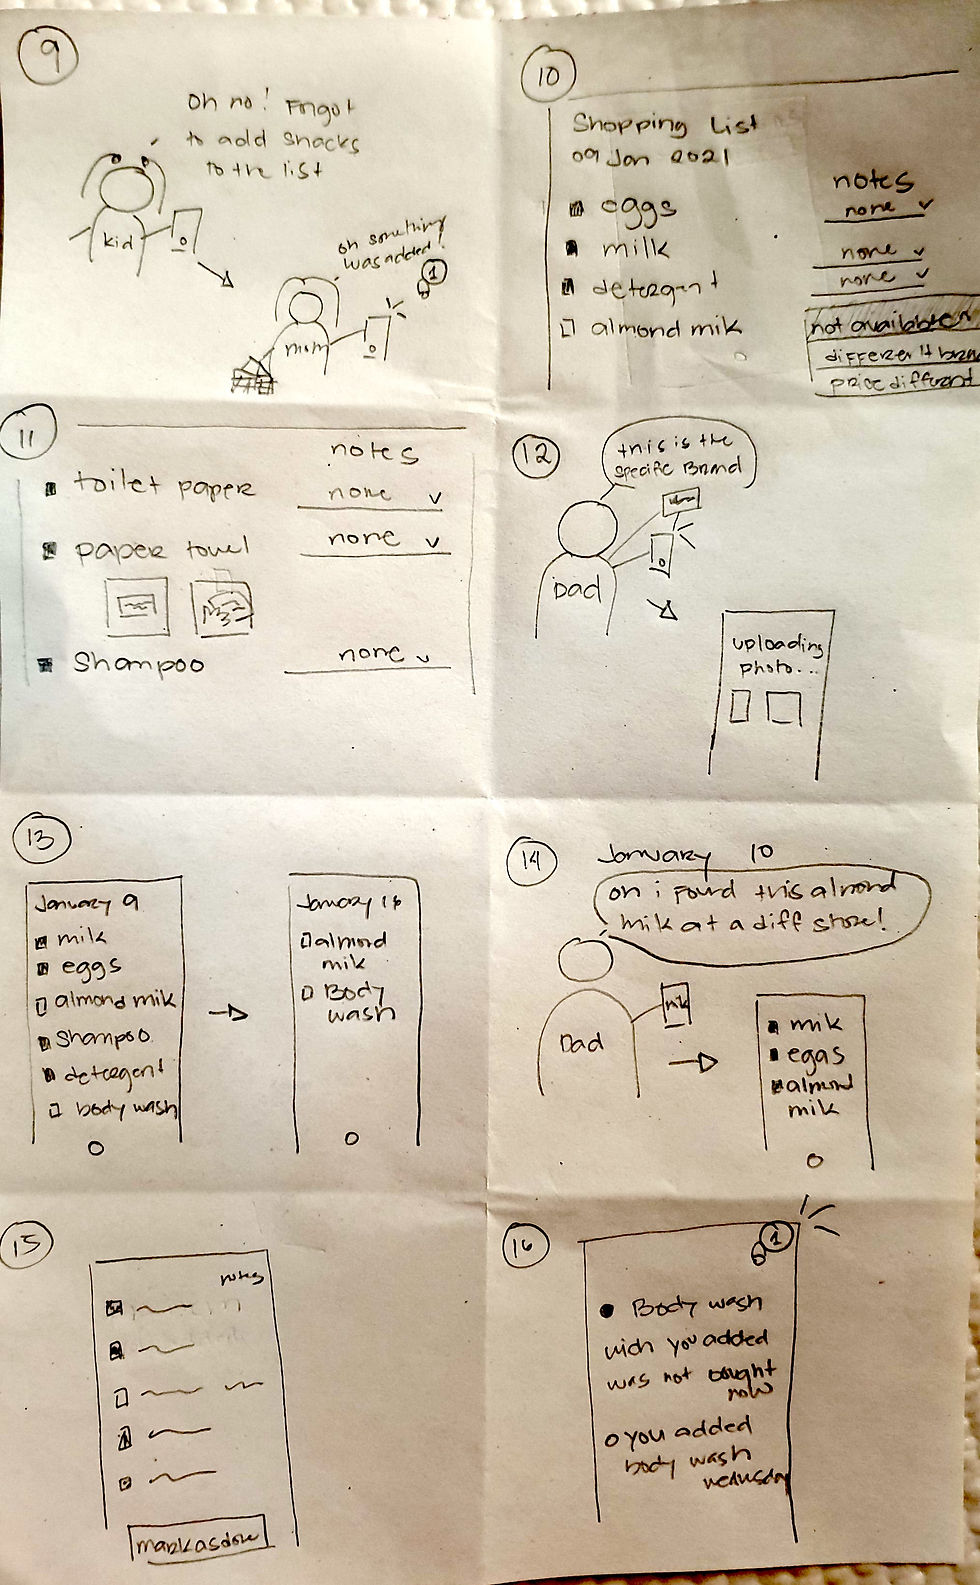 9
Oh no! Forgot
to add snacks
to the list
kid
oh something
was added!
1
mom
10
Shopping List
09 Jan 2021
notes
eggs
none
milk
none
detergent
none
almond mik
not available
different bran
price different
11
notes
toilet paper
none
paper towel
none
Shampoo
none
12
this is the
specific Brand
Dad
uploading
photo...
13
January 9
milk
eggs
almond mik
Shampoo
detergent
body wash
January 16
almond
mik
Body
wash
14
January 10
oh i found this almond
milk at a diff store!
Dad
mik
egas
almond
milk
15
notes
mark as done
16
1
Body wash
wich you added
was not bought
now
you added
body wash
wednusday